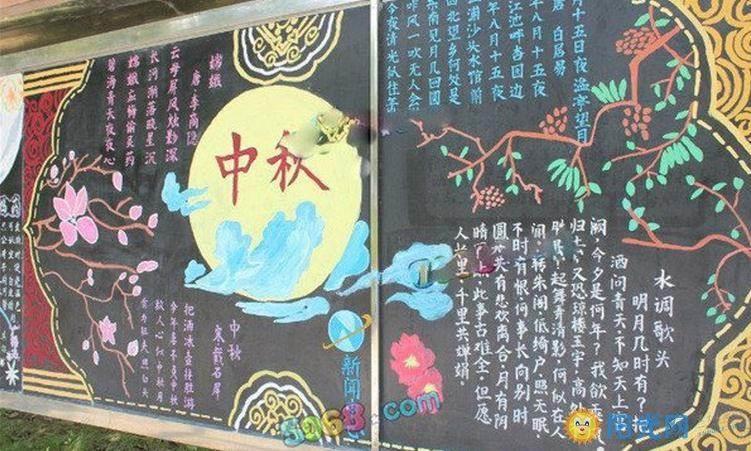 月十五日夜湓亭望月
白居易
年八月十五夜
江池畔杏园边
年八月十五夜
浦沙头水馆前
北望乡何处是
南见月几回圆
昨风一吹无人会
今夜清光似往年
水调歌头
明月几时有?把
酒问青天,不知天上
阙,今夕是何年?我欲乘
归去,又恐琼楼玉宇,高
起舞弄清影,何似在人
间,转朱阁,低绮户,照无眠,
不时有恨,何事长向别时
圆?有悲欢离合,月有阴
晴此事古难全,但愿
人长千里共婵娟。
中秋
嫦娥
唐·李商隐
云母屏风烛影深
长河渐落晓星沉
嫦娥应悔偷灵药
碧海青天夜夜心
中秋
把酒冰壶接胜游
今年喜不负中秋
故人心似中秋月
肯为狂夫照白头
新闻
5968.com
阳光网